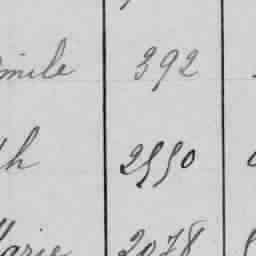 mile 392
th 2550
Marie 2078